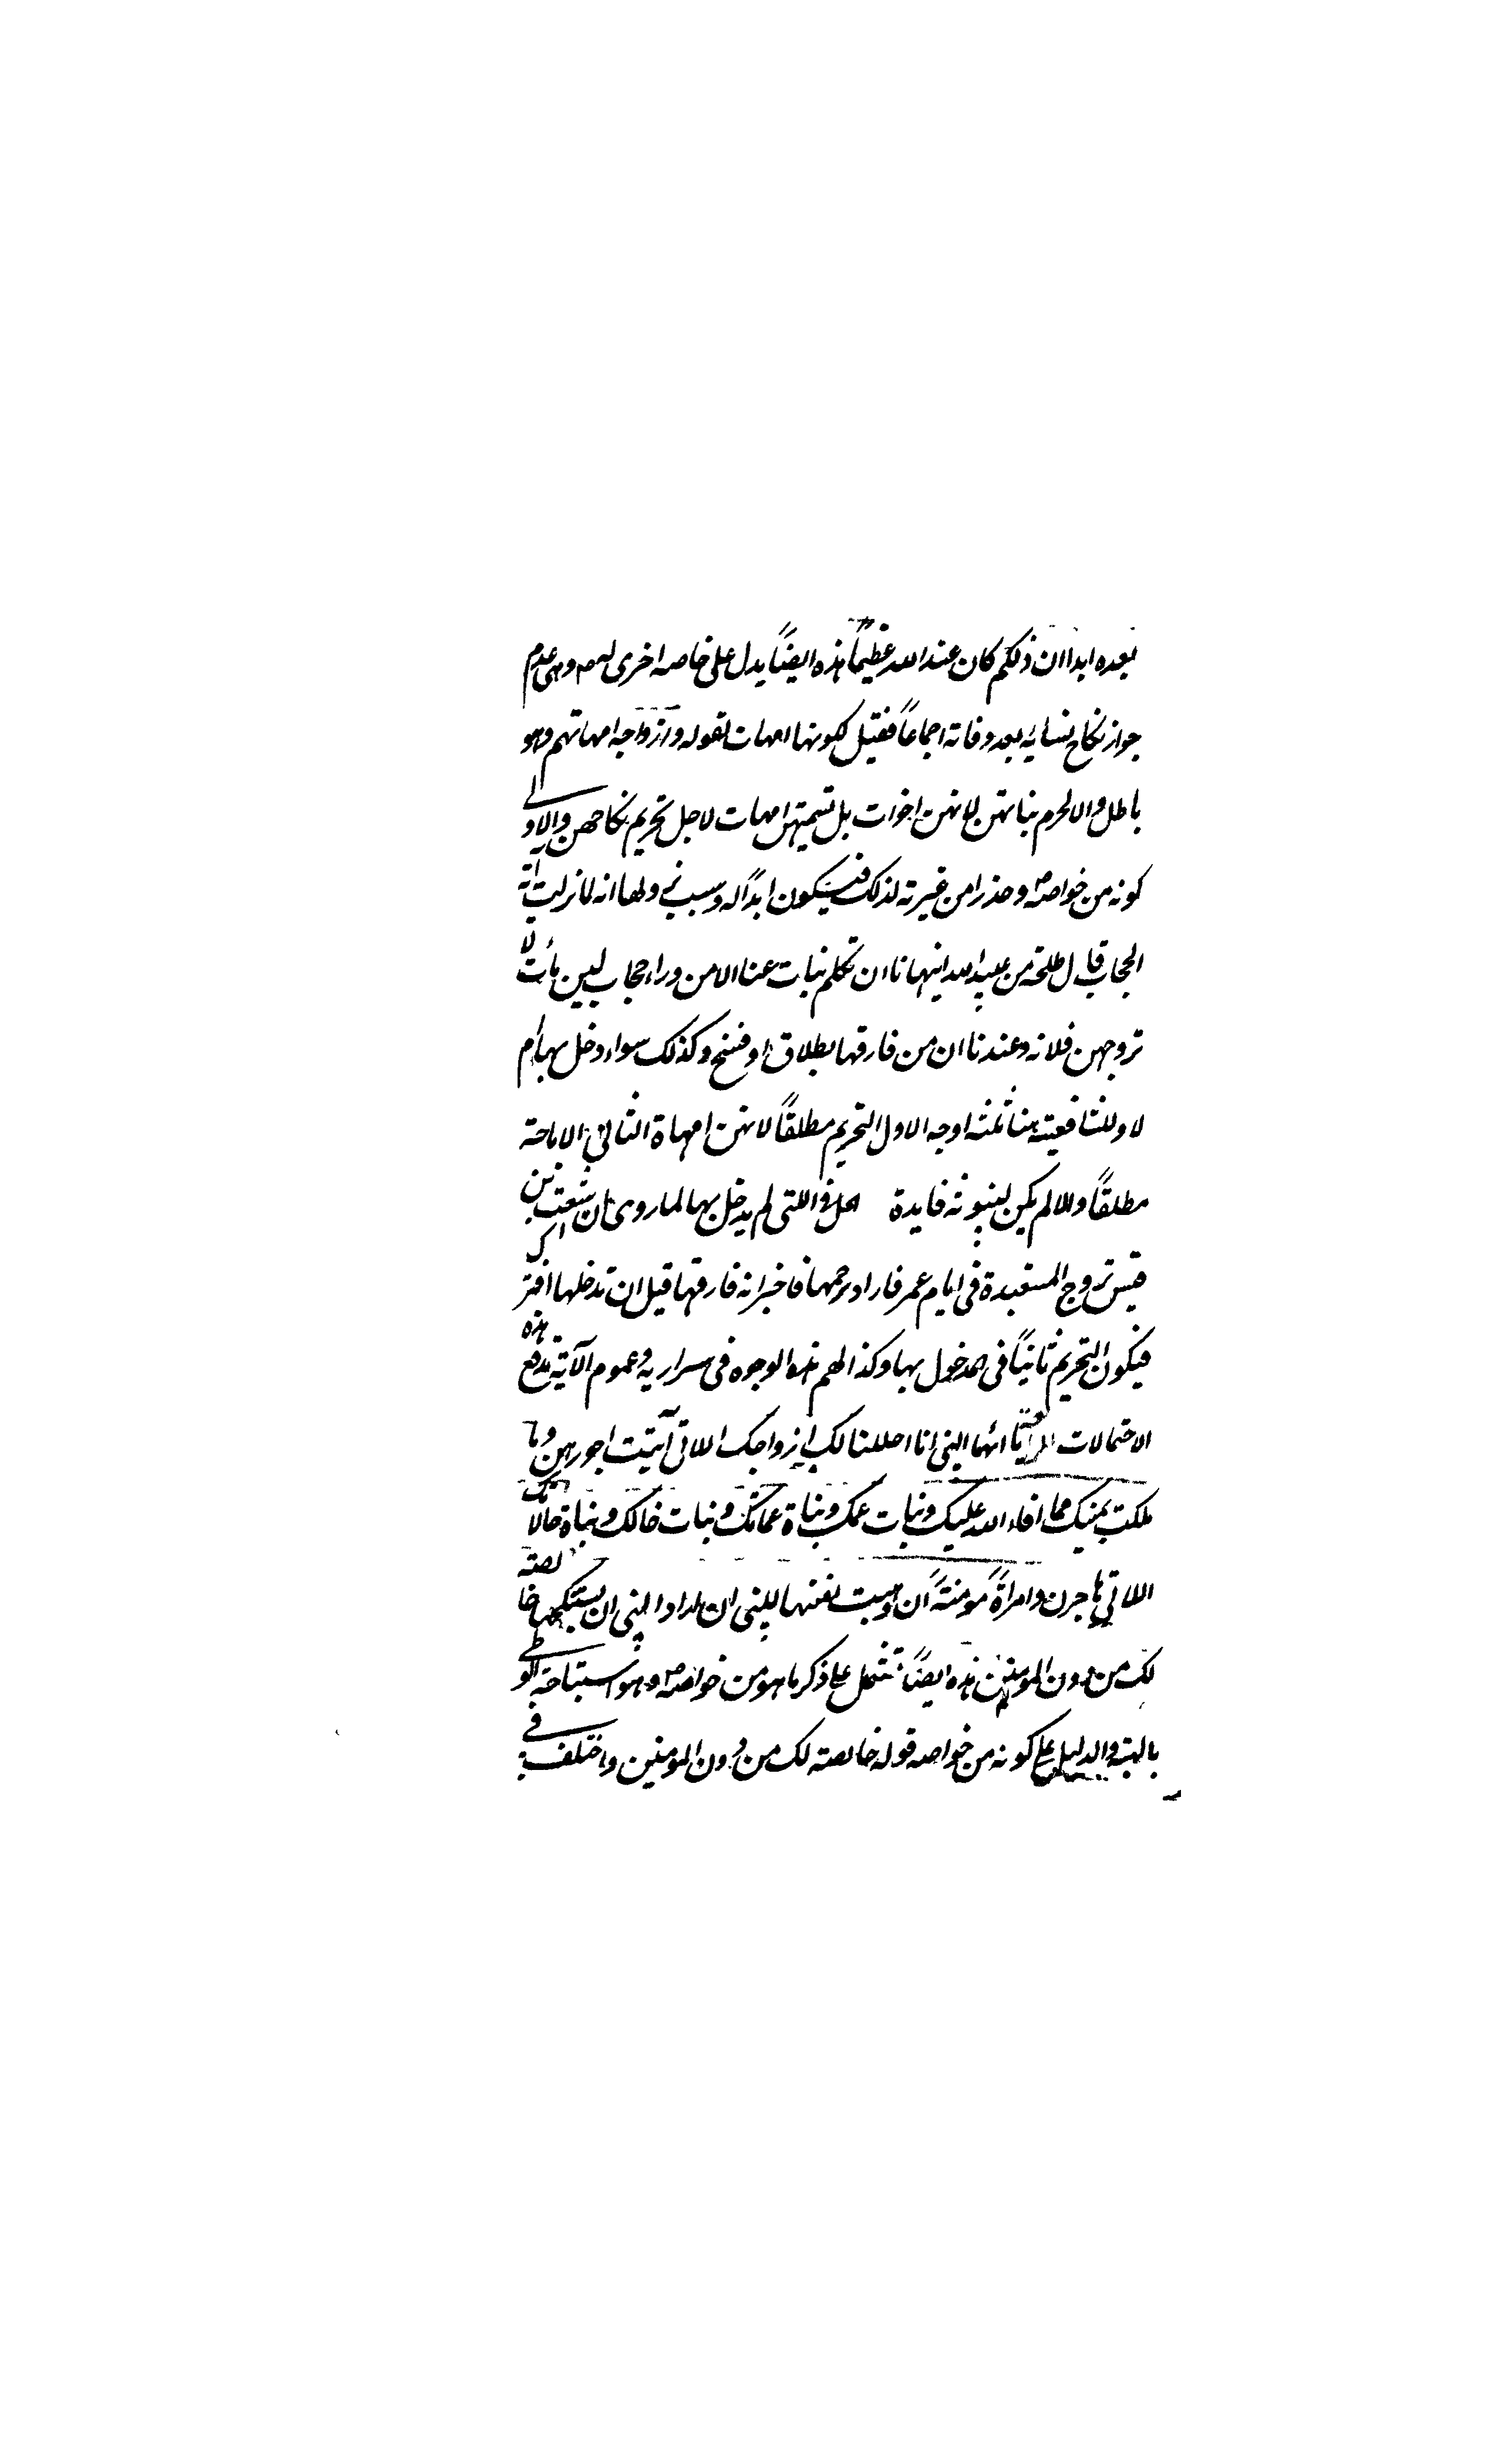 بعده ابدا ان ذلكم كان عند الله عظيماً هذه ايضاً يدل على خاصه اخرى له ص وهى عدم
جواز نكاح نسائه بعد وفاته اجماعاً فقيل لكونها امهات لقوله وازواجه امهاتهم وهو
باطل والا لحرم بناتهن لانهن اخوات بل تسميتهن امهات لاجل تحريم نكاحهن والاولى
كونه من خواصه ص وحذرا من غيرته لذلك فيكون ابداً له وسبب نزولها انه لما نزلت آية
الحجاب قال طلحة من عبيد الله اينهانا ان نكلم بنات عمنا الا من وراء حجاب لين مات لا
تزوجن فلانه وعندنا ان من فارقها بطلاق او فسخ وكذلك سواء دخل بها ام
لا وللشافعيته هنا ثلثه اوجه الاول التحريم مطلقاً لانهن امهاة الثانى الاباحة
مطلقاً والا لم يكن لبينونه فايدة الحل فى اللتى لم يدخل بها لما روى ان اشعث بن
قيس تزوج المستعيذة فى ايام عمر فاراد رجمها فاخبرانه فارقها قبل ان تدخلها فترك
فيكون التحريم ثانياً فى المدخول بها وكذا لهم هذه الوجوه فى سراريه وعموم الآية تدفع هذه
الاحتمالات يا ايها النبى انا احللنا لك ازواجك اللاتى آتيت اجورهن وما
ملكت يمينك مما افاء الله عليك وبنات عمك وبناة عماتك وبنات خالك وبناة خالاتك
اللاتي هاجرن وامراةً مومنتهً ان وهبت نفسها للنبى ان اراد النبى ان يستنكحها خالصته
لك من دون المومنين هذه ايضاً تشتمل على ذكر ما هو من خواصه ص وهو استباحة الوطى
بالهبته والدليل على كونه من خواصه قوله خالصته لك من دون المومنين واختلف فى